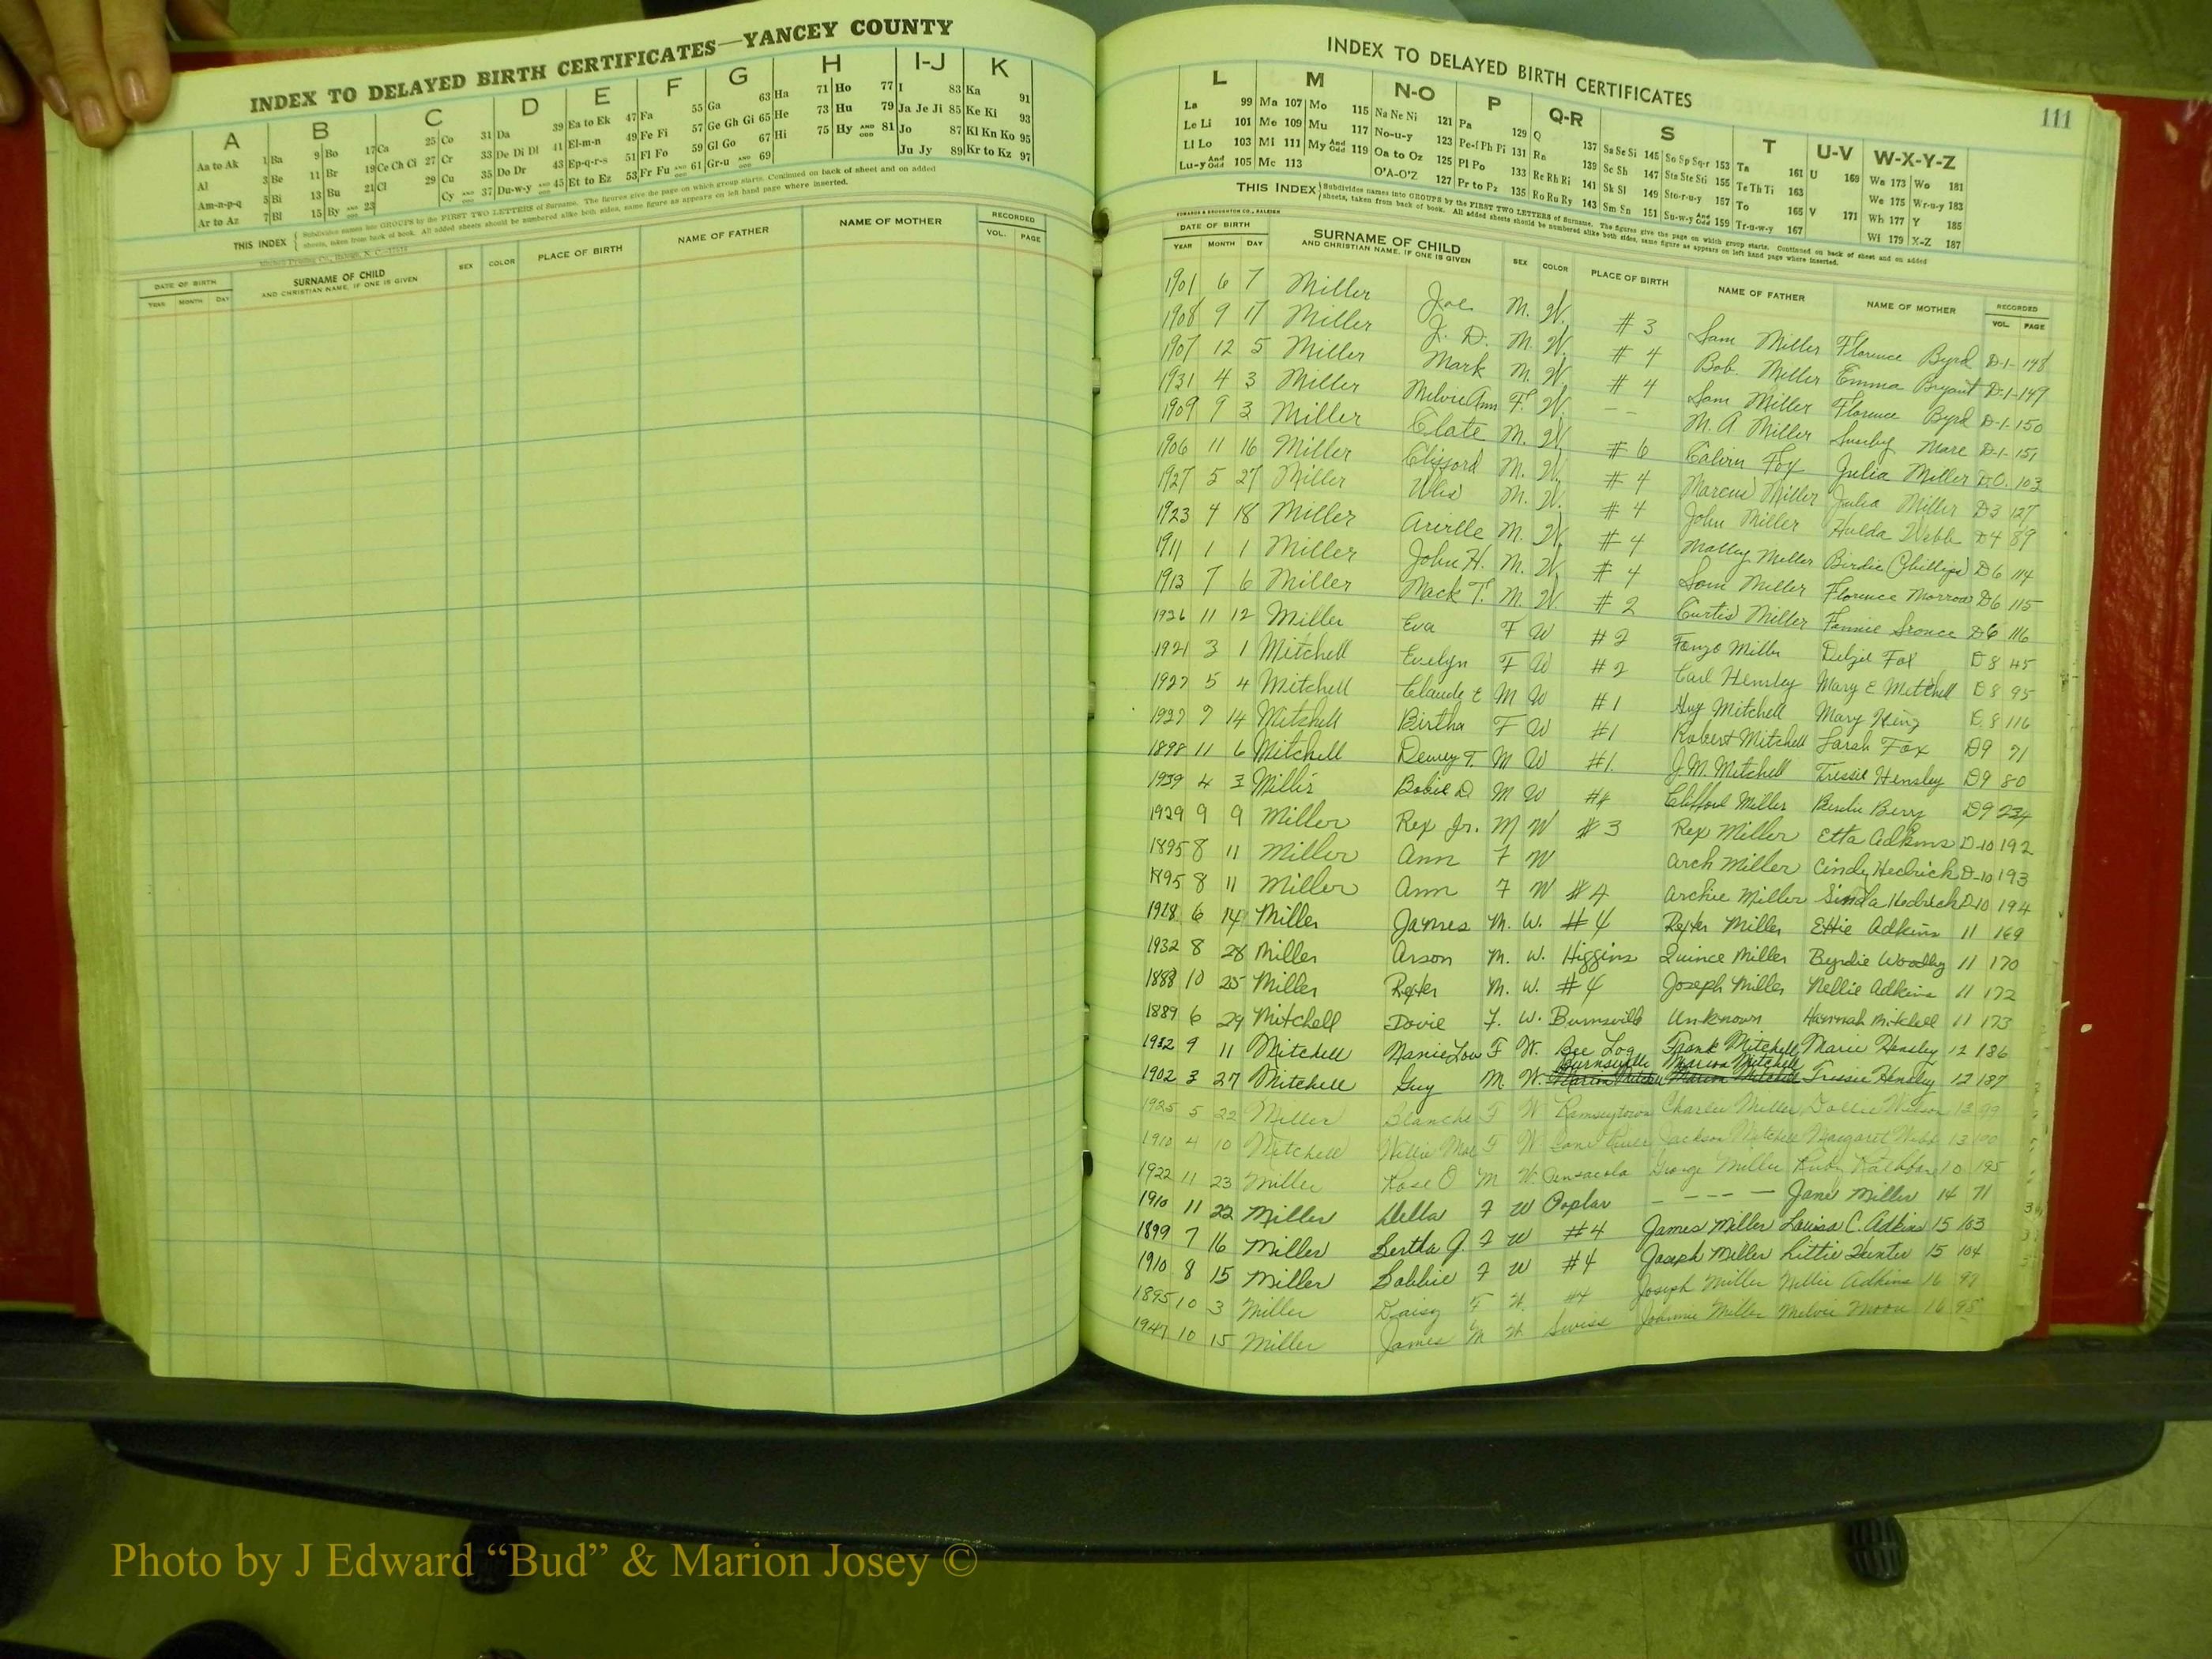 INDEX TO DELAYED BIRTH CERTIFICATES—YANCEY COUNTY
A B C D E F G H I-J K
Aa to Ak 1 Ba 9 Bo 17 Ca 25 Co 31 Da 39 Ea to Ek 47 Fa 55 Ga 63 Ha 71 Ho 77 I 83 Ka 91
Al 3 Be 11 Br 19 Ce Ch Ci 27 Cr 33 De Di Dl 41 El-m-n 49 Fe Fi 57 Ge Gh Gi 65 He 73 Hu 79 Ja Je Ji 85 Ke Ki 93
Am-n-p-q 5 Bi 13 Bu 21 Cl 29 Cu 35 Do Dr 43 Ep-q-r-s 51 Fl Fo 59 Gl Go 67 Hi 75 Hy AND ODD 81 Jo 87 Kl Kn Ko 95
Ar to Az 7 Bl 15 By AND ODD 23 Cy AND ODD 37 Du-w-y AND ODD 45 Et to Ez 53 Fr Fu AND ODD 61 Gr-u AND ODD 69 Ju Jy 89 Kr to Kz 97
THIS INDEX { Subdivides names into GROUPS by the FIRST TWO LETTERS of Surname. The figures give the page on which group starts. Continued on back of sheet and on added
sheets, taken from back of book. All added sheets should be numbered alike both sides, same figure as appears on left hand page where inserted.
DATE OF BIRTH SURNAME OF CHILD SEX COLOR PLACE OF BIRTH NAME OF FATHER NAME OF MOTHER RECORDED
YEAR MONTH DAY AND CHRISTIAN NAME, IF ONE IS GIVEN VOL. PAGE
INDEX TO DELAYED BIRTH CERTIFICATES
111
L M N-O P Q-R S T U-V W-X-Y-Z
La 99 Ma 107 Mo 115 Na Ne Ni 121 Pa 129 Q 137 Sa Se Si 145 So Sp Sq-r 153 Ta 161 U 169 Wa 173 Wo 181
Le Li 101 Me 109 Mu 117 No-u-y 123 Pe-f Ph Pi 131 Ra 139 Sc Sh 147 Sta Ste Sti 155 Te Th Ti 163 We 175 Wr-u-y 183
Ll Lo 103 Mi 111 My And Odd 119 Oa to Oz 125 Pl Po 133 Re Rh Ri 141 Sk Sl 149 Sto-r-u-y 157 To 165 V 171 Wh 177 Y 185
Lu-y And Odd 105 Mc 113 O'A-O'Z 127 Pr to Pz 135 Ro Ru Ry 143 Sm Sn 151 Su-w-y And Odd 159 Tr-u-w-y 167 Wi 179 X-Z 187
THIS INDEX { Subdivides names into GROUPS by the FIRST TWO LETTERS of Surname. The figures give the page on which group starts. Continued on back of sheet and on added
sheets, taken from back of book. All added sheets should be numbered alike both sides, same figure as appears on left hand page where inserted.
EDWARDS & BROUGHTON CO., RALEIGH
DATE OF BIRTH SURNAME OF CHILD SEX COLOR PLACE OF BIRTH NAME OF FATHER NAME OF MOTHER RECORDED
YEAR MONTH DAY AND CHRISTIAN NAME, IF ONE IS GIVEN VOL. PAGE
1901 6 7 Miller Joe M. W. #3 Sam Miller Florence Byrd D-1-148
1908 9 17 Miller J. D. M. W. #4 Bob Miller Emma Bryant D-1-149
1907 12 5 Miller Mark M. W. #4 Sam Miller Florence Byrd D-1-150
1931 4 3 Miller Melvie Ann F. W. -- M. A Miller D-1-151
1909 9 3 Miller Clate M. W. #6 Calvin Fox Julia Miller D.O. 103
1906 11 16 Miller Clifford M. W. #4 Marcus Miller Julia Miller D3 127
1927 5 27 Miller M. W. #4 John Miller Hulda Webb D4 89
1923 4 18 Miller M. W. #4 Miller Birdie (Phillips) D6 114
1911 1 1 Miller John H. M. W. #4 Sam Miller Florence Morrow D6 115
1913 7 6 Miller Mack T. M. W. #2 Curtis Miller Fannie D6 116
1926 11 12 Miller Eva F W #2 Fonzo Miller Fox D8 45
1921 3 1 Mitchell Evelyn F W #2 Carl Hensley Mary E Mitchell D8 95
1927 5 4 Mitchell Claude E M W #1 Mitchell Mary King D.8 116
1927 9 14 Mitchell Birtha F W #1 Robert Mitchell Sarah Fox D9 71
1898 11 6 Mitchell Dewey T. M W #1. J.M. Mitchell Tressie Hensley D9 80
1939 4 3 Miller Bobie D M W #4 Clifford Miller Berry D9 234
1929 9 9 Miller Rex Jr. M W #3 Rex Miller Etta Adkins D-10 192
1895 8 11 Miller Ann F W Arch Miller Cindy Hedrick D-10 193
1895 8 11 Miller Ann F W #4 Archie Miller Hedrick D-10 194
1928 6 14 Miller James M. W. #4 Rexter Miller Effie Adkins 11 169
1932 8 28 Miller Arson M. W. Higgins Quince Miller Byrdie Woodby 11 170
1888 10 25 Miller Rexter M. W. #4 Joseph Miller Nellie Adkins 11 172
1889 6 29 Mitchell Dovie F. W. Burnsville Unknown Hannah Mitchell 11 173
1932 9 11 Mitchell Nanie Lou F W. Bee Log Frank Mitchell Marie Hensley 12 186
1902 3 27 Mitchell Guy M. W. Burnsville Marion Mitchell Tressie Hensley 12 187
1925 5 22 Miller Blanche F W Ramseytown Charlie Miller Dollie Wilson 13 99
1910 4 10 Mitchell Willie Mae F W Cane River Jackson Mitchell Margaret Webb 13 100
1922 11 23 Miller Rose O M W. Pensacola George Miller Ruby 10 195
1910 11 22 Miller Della F W Poplar ---- Jane Miller 14 71
1899 7 16 Miller Bertha J. F W #4 James Miller Louisa C. Adkins 15 103
1910 8 15 Miller Bobbie F W #4 Joseph Miller Littie Hunter 15 104
1895 10 3 Miller Daisy F W. #4 Joseph Miller Nellie Adkins 16 97
1947 10 15 Miller James M W Swiss Johnnie Miller Melvie Moore 16 98
Photo by J Edward “Bud” & Marion Josey ©